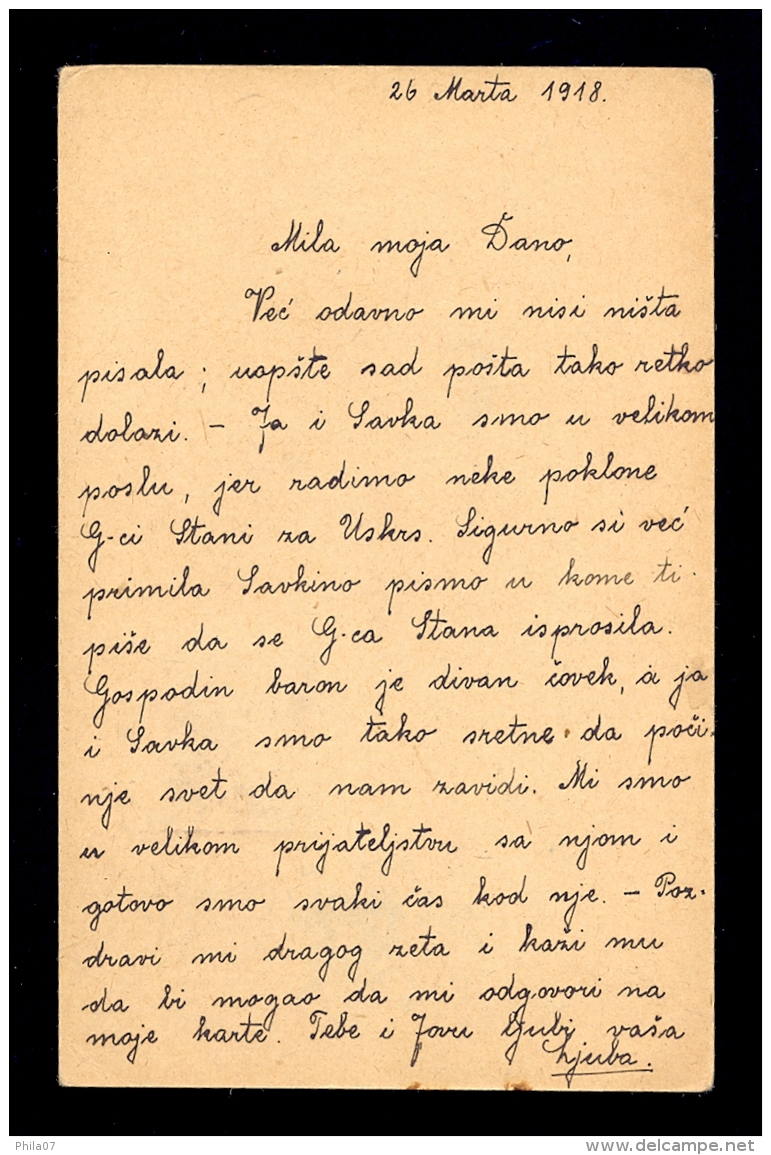 26 Marta 1918.
Mila moja Đano,
Već odavno mi nisi ništa
pisala; uopšte sad pošta tako retko
dolazi. – Ja i Savka smo u velikom
poslu, jer radimo neke poklone
G-ci Stani za Uskrs. Sigurno si već
primila Savkino pismo u kome ti
piše da se G-ca Stana isprosila.
Gospodin baron je divan čovek, a ja
i Savka smo tako sretne da poči-
nje svet da nam zavidi. Mi smo
u velikom prijateljstvu sa njom i
gotovo smo svaki čas kod nje. – Poz-
dravi mi dragog zeta i kaži mu
da bi mogao da mi odgovori na
moje karte. Tebe i Jovu ljubi vaša
Ljuba.
Phila07
delcampe.net